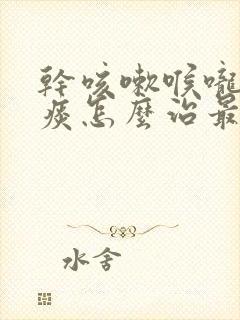 幹咳嗽喉嚨
痰怎麼治最
水舍